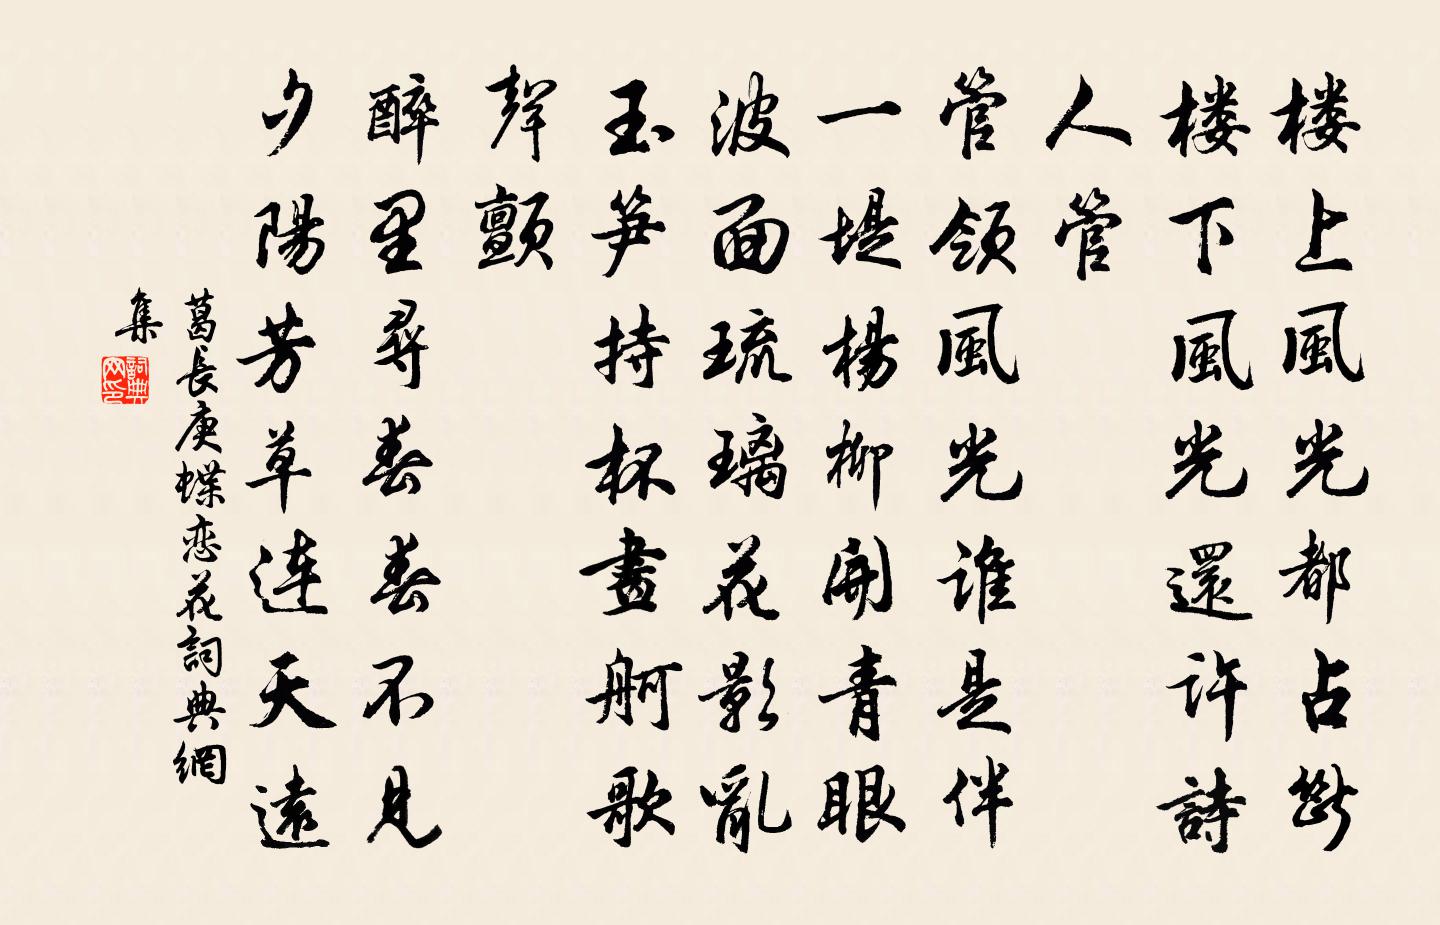 楼上風光都占斷
楼下風光還許詩
人管
管領風光誰是伴
一堤楊柳開青眼
波面琉璃花影亂
玉笋持杯畫舸歌
聲顫
醉里尋春春不見
夕陽芳草連天遠
葛長庚蝶恋花詞典網
集
詞典网印